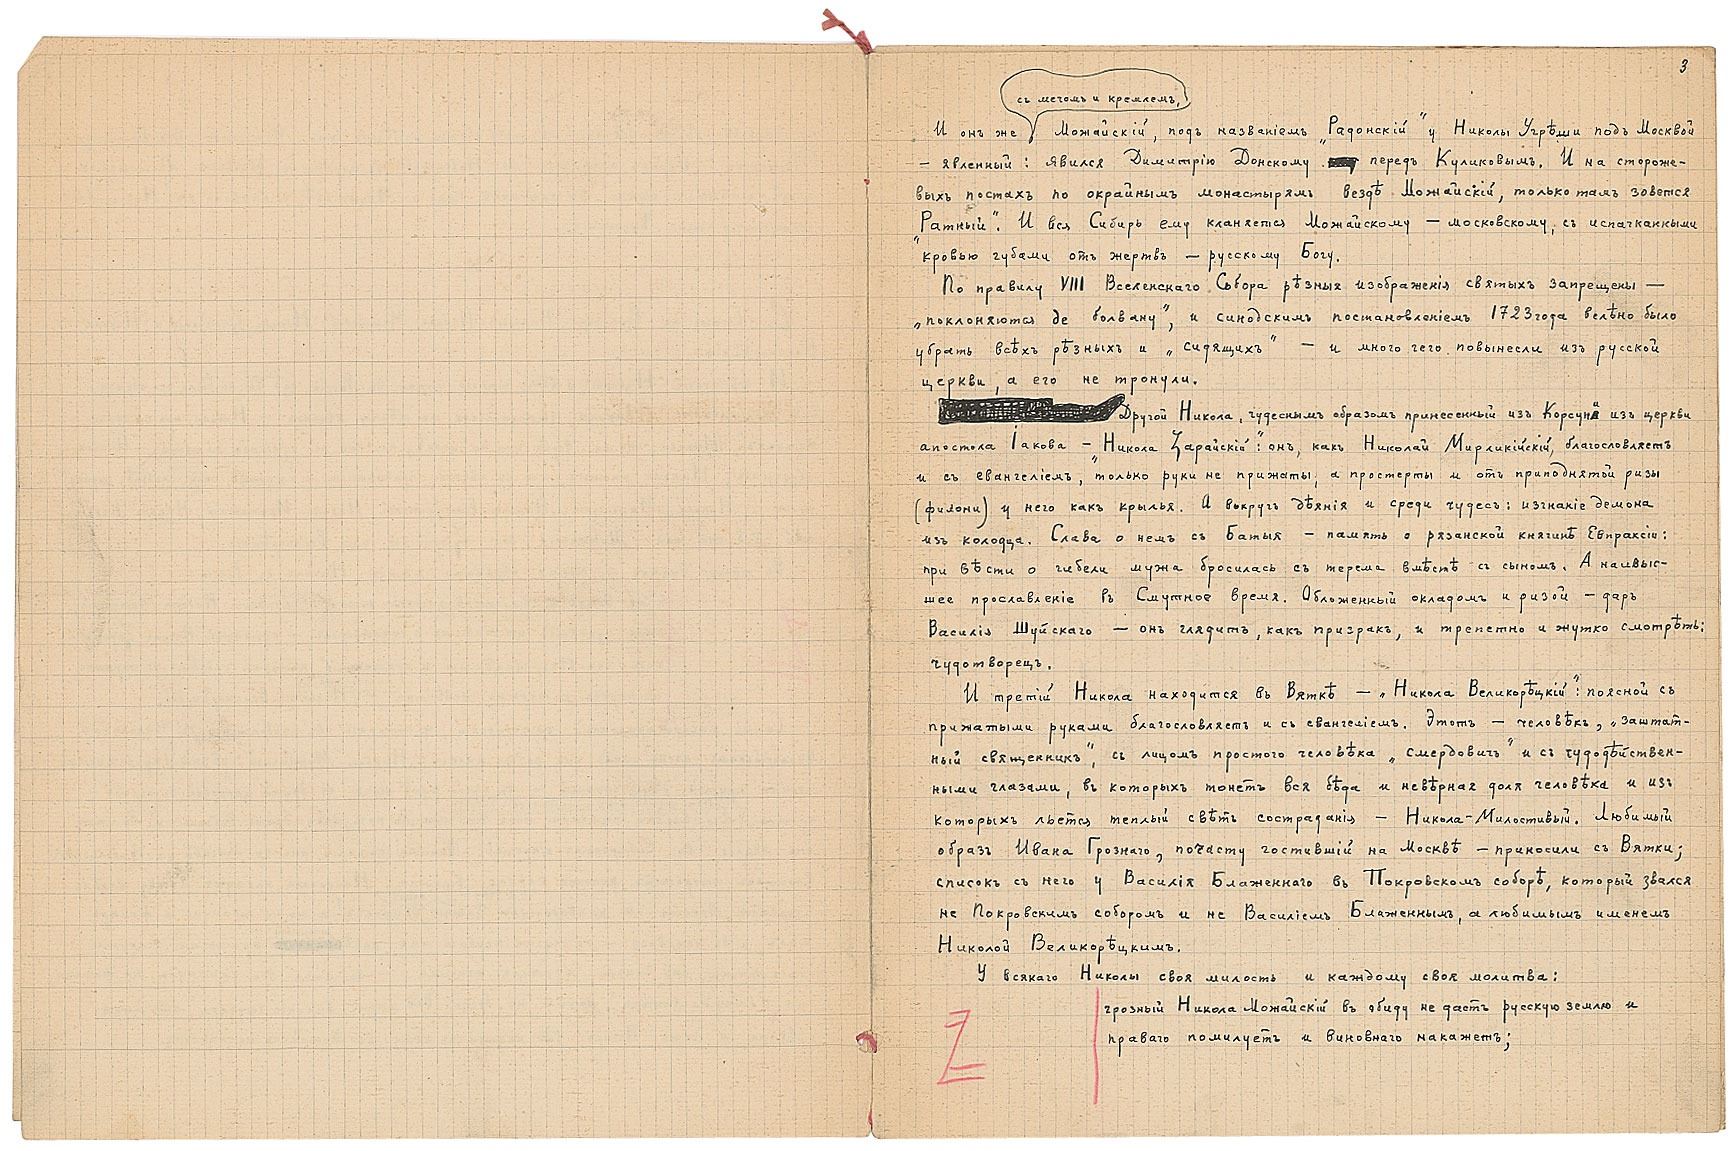 3
съ мечомъ и кремлемъ,
И онъ же Можайскій, подъ названіемъ „Радонскій" у Николы Угрѣши подъ Москвой
— явленный: явился Димитрію Донскому передъ Куликовымъ. И на стороже-
выхъ постахъ по окрайнымъ монастырямъ вездѣ Можайскій, только тамъ зовется
„Ратный". И вся Сибирь ему кланяется Можайскому — московскому, съ испачканными
кровью губами отъ жертвъ — русскому Богу.
По правилу VIII Вселенскаго Собора рѣзныя изображенія святыхъ запрещены —
„поклоняются де болвану", и синодскимъ постановленіемъ 1723 года велѣно было
убрать всѣхъ рѣзныхъ и „сидящихъ" — и много чего повынесли изъ русской
церкви, а его не тронули.
Другой Никола, чудеснымъ образомъ принесенный изъ Корсуни изъ церкви
апостола Іакова — „Никола Зарайскій": онъ, какъ Николай Мирликійскій, благословляетъ
и съ евангеліемъ, только руки не прижаты, а простерты и отъ приподнятой ризы
(филони) у него какъ крылья. А вкругъ дѣянія и среди чудесъ: изгнаніе демона
изъ колодца. Слава о немъ съ Батыя — память о рязанской княгинѣ Евпраксіи:
при вѣсти о гибели мужа бросилась съ терема вмѣстѣ съ сыномъ. А наивыс-
шее прославленіе въ Смутное время. Обложенный окладомъ и ризой — даръ
Василія Шуйскаго — онъ глядитъ, какъ призракъ, и трепетно и жутко смотрѣть:
чудотворецъ.
И третій Никола находится въ Вяткѣ — „Никола Великорѣцкій": поясной съ
прижатыми руками благословляетъ и съ евангеліемъ. Этотъ — человѣкъ, „заштат-
ный священникъ", съ лицомъ простого человѣка „смердовичъ" и съ чудодѣйствен-
ными глазами, въ которыхъ тонетъ вся бѣда и невѣрная доля человѣка и изъ
которыхъ льется теплый свѣтъ состраданія — Никола-Милостивый. Любимый
образъ Ивана Грознаго, почасту гостившій на Москвѣ — приносили съ Вятки;
списокъ съ него у Василія Блаженнаго въ Покровскомъ соборѣ, который звался
не Покровскимъ соборомъ и не Василіемъ Блаженнымъ, а любимымъ именемъ
Николой Великорѣцкимъ.
У всякаго Николы своя милость и каждому своя молитва:
грозный Никола Можайскій въ обиду не дастъ русскую землю и
праваго помилуетъ и виновнаго накажетъ;
Z